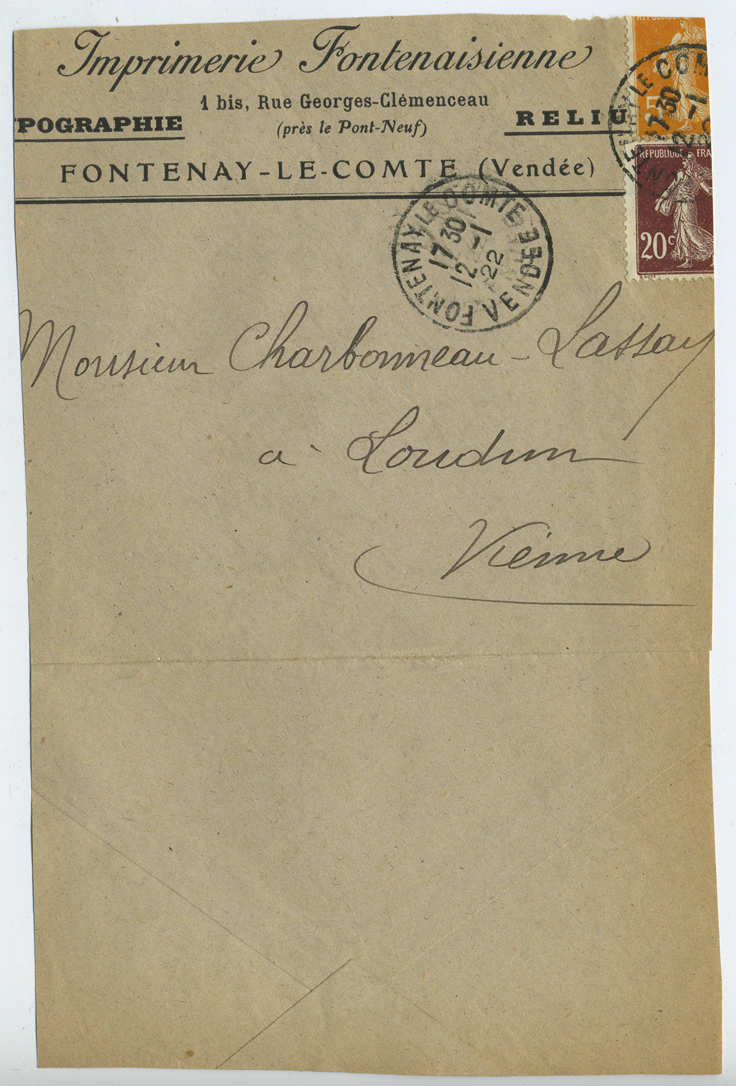 Imprimerie Fontenaisienne
1 bis, Rue Georges-Clémenceau
POGRAPHIE (près le Pont-Neuf) RELIU
FONTENAY-LE-COMTE (Vendée)
RÉPUBLIQUE FRA
20c
FONTENAY LE COMTE VENDÉE
17 30
12 -1
22
Monsieur Charbonneau-Lassay
à Loudun
Vienne